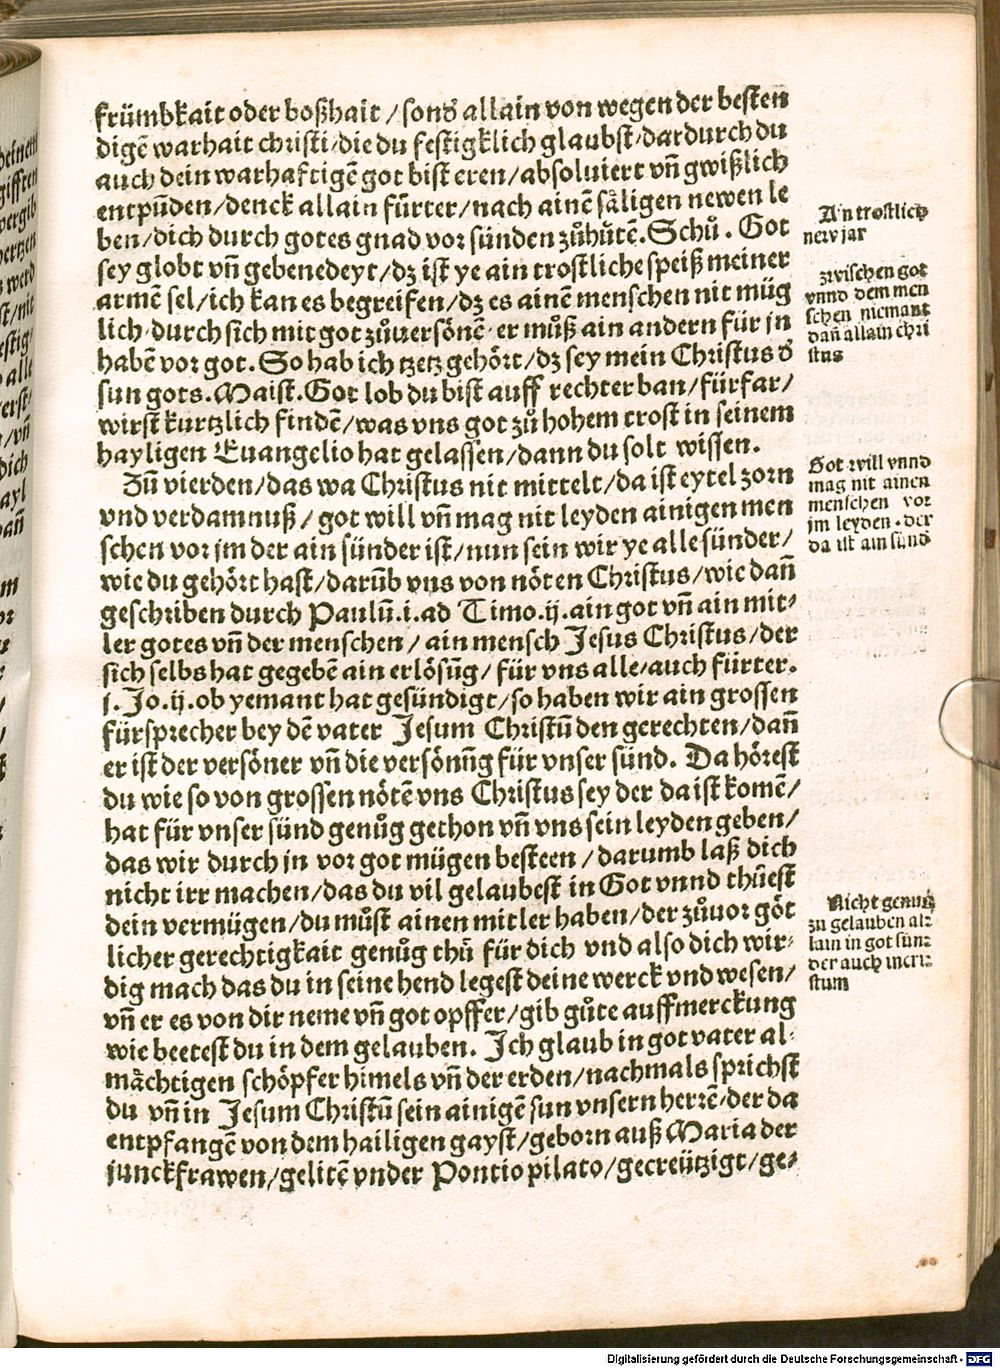 frümbkait oder boßhait / sonď allain von wegen der besten
digē warhait christi / die du festigklich glaubst / dardurch du
auch dein warhaftigē got bist eren / absoluiert vn̄ gwißlich
entpūden / denck allain fürter / nach ainē säligen newen le
ben / dich durch gotes gnad vor sünden zůhütē. Schů. Got
sey globt vn̄ gebenedeyt / dz ist ye ain trostliche speiß meiner
armē sel / ich kan es begreifen / dz es ainē menschen nit müg
lich durch sich mit got zůuersönē er můß ain andern für jn
habē vor got. So hab ich yetz gehört / dz sey mein Christus ď
sun gots. Maist. Got lob du bist auff rechter ban / fürfar /
wirst kurtzlich findē / was vns got zů hohem trost in seinem
hayligen Euangelio hat gelassen / dann du solt wissen.
Zū vierden / das wa Christus nit mittelt / da ist eytel zorn
vnd verdamnuß / got will vn̄ mag nit leyden ainigen men
schen vor jm der ain sünder ist / nun sein wir ye alle sünder /
wie du gehört hast / darūb vns von nöten Christus / wie dan̄
geschriben durch Paulū .i. ad Timo .ij. ain got vn̄ ain mit-
ler gotes vn̄ der menschen / ain mensch Jesus Christus / der
sich selbs hat gegebē ain erlösūg / für vns alle / auch fürter.
j. Jo. ij. ob yemant hat gesündigt / so haben wir ain grossen
fürsprecher bey dē vater Jesum Christū den gerechten / dan̄
er ist der versöner vn̄ die versönūg für vnser sünd. Da hörest
du wie so von grossen nötē vns Christus sey der da ist komē /
hat für vnser sünd genůg gethon vn̄ vns sein leyden geben /
das wir durch jn vor got mügen besteen / darumb laß dich
nicht irr machen / das du vil gelaubest in Got vnnd thůest
dein vermügen / du můst ainen mitler haben / der zůuor göt
licher gerechtigkait genůg thů für dich vnd also dich wir-
dig mach das du in seine hend legest deine werck vnd wesen /
vn̄ er es von dir neme vn̄ got opffer / gib gůte auffmerckung
wie beetest du in dem gelauben. Ich glaub in got vater al-
mächtigen schöpfer himels vn̄ der erden / nachmals sprichst
du vn̄ in Jesum Christū sein ainigē sun vnsern herrē / der da
entpfangē von dem hailigen gayst / geborn auß Maria der
junckfrawen / gelitē vnder Pontio pilato / gecreützigt / ge-
Ain trostlich
new jar
zwischen got
vnnd dem men
schen niemant
dan̄ allain chri
stus
Got will vnnd
mag nit ainen
menschen vor
jm leyden der
da ist ain sünd
Nicht genug
zu gelauben al-
lain in got sun-
der auch in cri-
stum
Digitalisierung gefördert durch die Deutsche Forschungsgemeinschaft - DFG